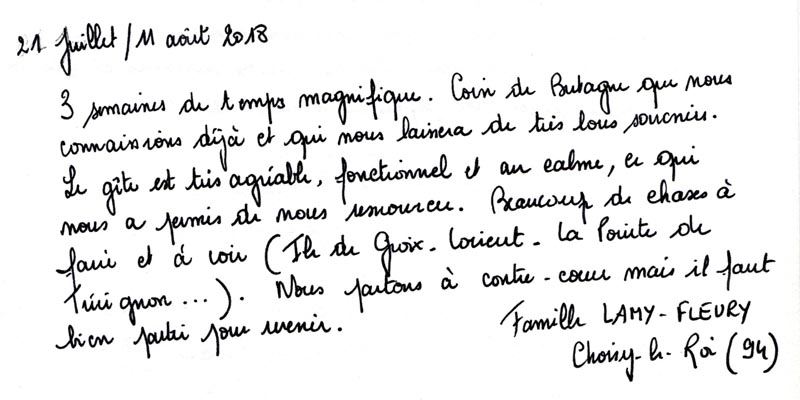 21 Juillet / 11 août 2018
3 semaines de temps magnifique. Coin de Bretagne que nous
connaissions déjà et qui nous laissera de très bons souvenirs.
Le gîte est très agréable, fonctionnel et au calme, ce qui
nous a permis de nous ressourcer. Beaucoup de choses à
faire et à voir (Ile de Groix - Lorient - La Pointe de
Trévignon ...). Nous partons à contre-coeur mais il faut
bien partir pour revenir.
Famille LAMY-FLEURY
Choisy-le-Roi (94)